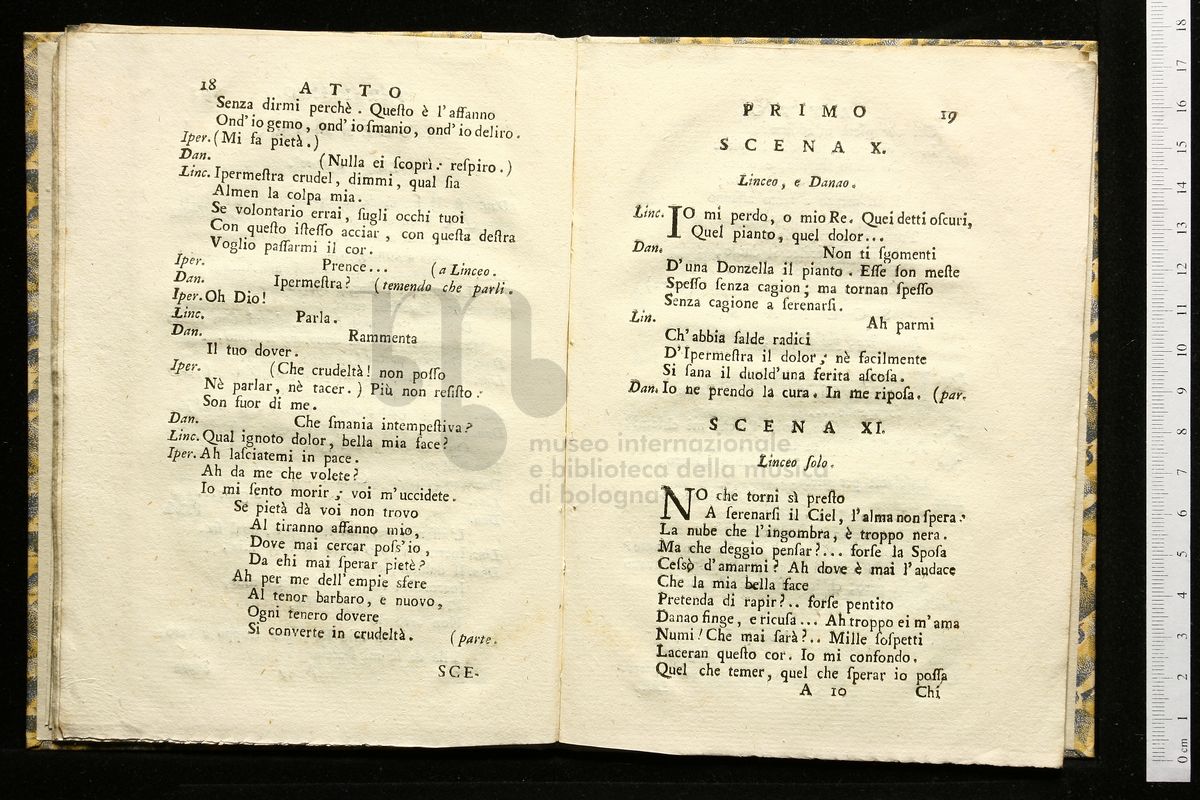 18 ATTO
Senza dirmi perchè. Queſto è l'affanno
Ond'io gemo, ond'io ſmanio, ond'io deliro.
Iper. (Mi fa pietà.)
Dan. (Nulla ei ſcoprì: reſpiro.)
Linc. Ipermeſtra crudel, dimmi, qual ſia
Almen la colpa mia.
Se volontario errai, ſugli occhi tuoi
Con queſto iſteſſo acciar, con queſta deſtra
Voglio paſſarmi il cor.
Iper. Prence... (a Linceo.
Dan. Ipermeſtra? (temendo che parli.
Iper. Oh Dio!
Linc. Parla.
Dan. Rammenta
Il tuo dover.
Iper. (Che crudeltà! non poſſo
Nè parlar, nè tacer.) Più non reſiſto:
Son fuor di me.
Dan. Che ſmania intempeſtiva?
Linc. Qual ignoto dolor, bella mia face?
Iper. Ah laſciatemi in pace.
Ah da me che volete?
Io mi ſento morir; voi m'uccidete.
Se pietà dà voi non trovo
Al tiranno affanno mio,
Dove mai cercar poſs'io,
Da ehi mai ſperar pietè?
Ah per me dell'empie sfere
Al tenor barbaro, e nuovo,
Ogni tenero dovere
Si converte in crudeltà. (parte.
SCE-
PRIMO 19
SCENA X.
Linceo, e Danao.
Linc. IO mi perdo, o mio Re. Quei detti oſcuri,
Quel pianto, quel dolor...
Dan. Non ti ſgomenti
D'una Donzella il pianto. Eſſe ſon meſte
Speſſo ſenza cagion; ma tornan ſpeſſo
Senza cagione a ſerenarſi.
Lin. Ah parmi
Ch'abbia ſalde radici
D'Ipermeſtra il dolor; nè facilmente
Si ſana il duold'una ferita aſcoſa.
Dan. Io ne prendo la cura. In me ripoſa. (par.
SCENA XI.
Linceo ſolo.
NO che torni sì preſto
A ſerenarſi il Ciel, l'alma non ſpera:
La nube che l'ingombra, è troppo nera.
Ma che deggio penſar?... forſe la Spoſa
Ceſsò d'amarmi? Ah dove è mai l'audace
Che la mia bella face
Pretenda di rapir?.. forſe pentito
Danao finge, e ricuſa... Ah troppo ei m'ama
Numi! Che mai ſarà?.. Mille ſoſpetti
Laceran queſto cor. Io mi confondo.
Quel che temer, quel che ſperar io poſſa
A 10 Chi
museo internazionale
e biblioteca della musica
di bologna
0 cm 1 2 3 4 5 6 7 8 9 10 11 12 13 14 15 16 17 18